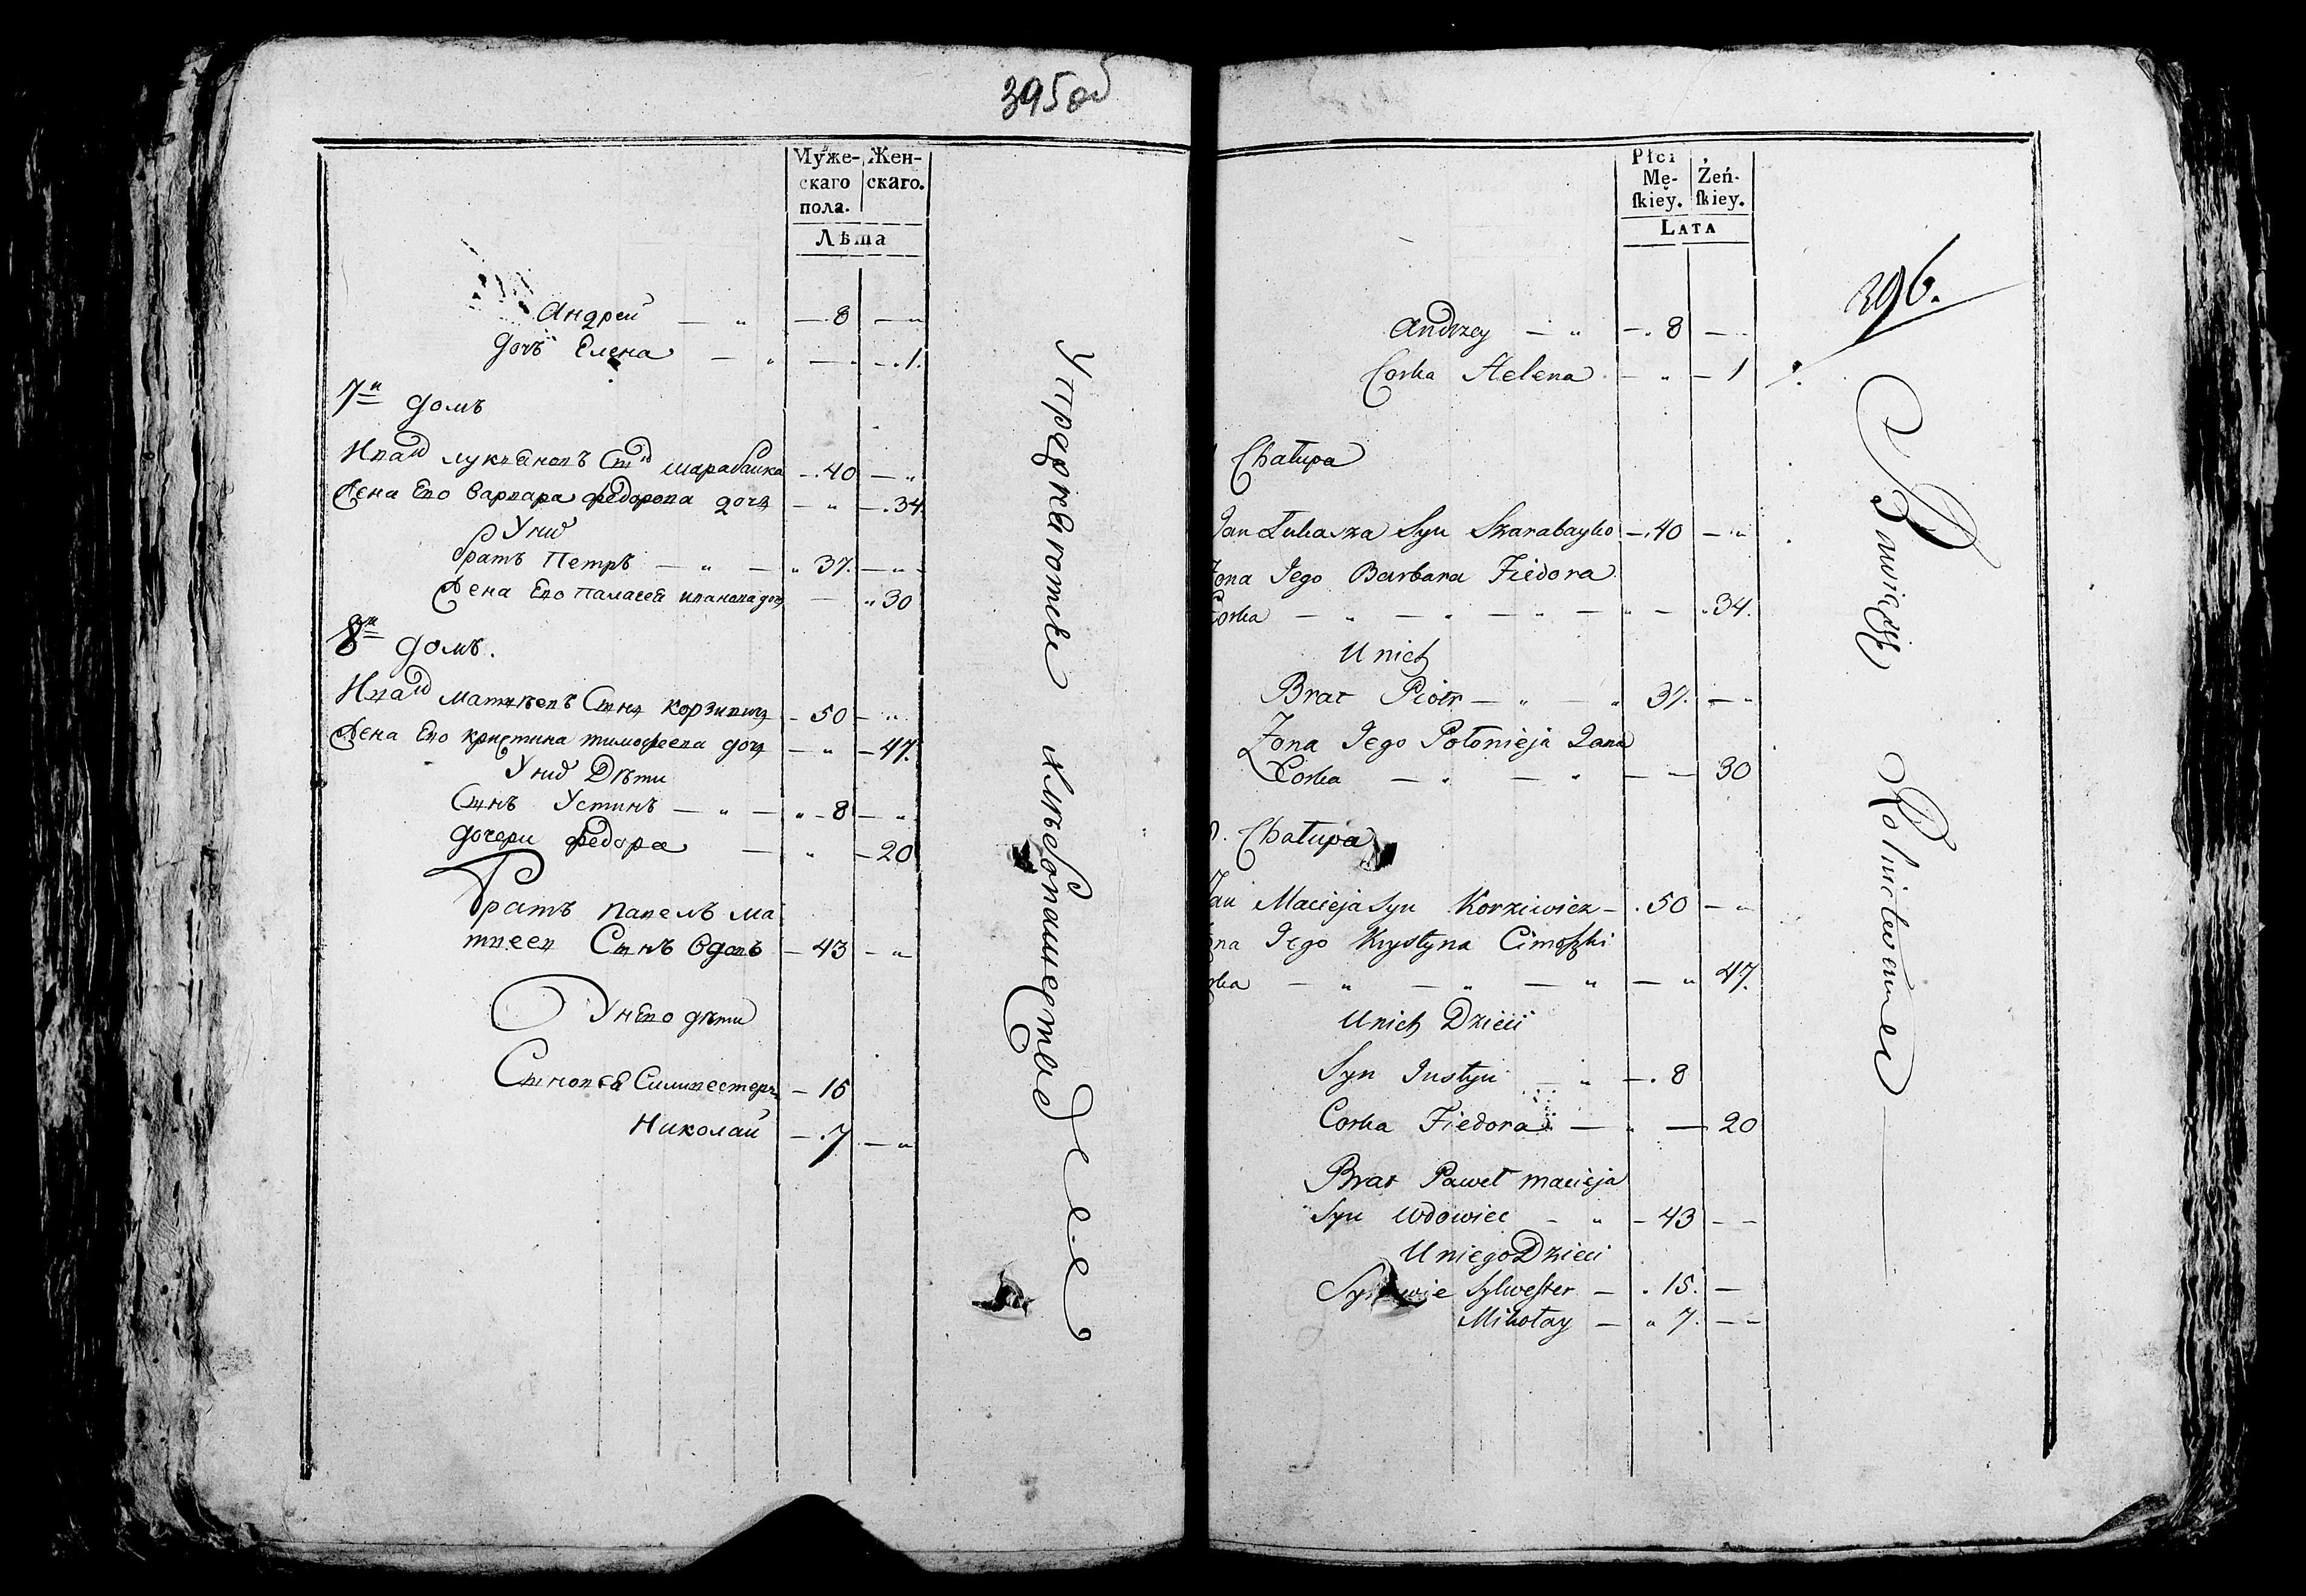 395 об
Муже-
скаго
пола.
Жен-
скаго.
Лѣта
Андрей — „ — 8 — „
дочь Елена — „ — „ — 1.
7й домъ
Иванъ лукьяновъ Сынъ шарабайка — 40 — „
Жена Ево варвара федорова дочь — „ — 34
У них
братъ Петръ — „ — „ 37. — „ —
Жена Ево Паласея иванова дочь — „ 30
8й домъ.
Иванъ матвѣевъ Сынъ корзивичь — 50 — „
Жена Ево кристина тимофеева дочь — „ — 47.
У них Дѣти
Сынъ Устинъ — „ — „ — 8 — „
дочери федора — „ — 20
Братъ павелъ ма
твеев Сынъ вдовъ — 43 — „
У нево дѣти
Сыновья Силивестеръ — 15
Николай — 7 — „
Упражняются хлѣбопашерствое
Płci
Mę-
ſkiey.
Żeń-
ſkiey.
LATA
396.
Andrzey — „ — „ 8 — „
Corka Helena — „ — 1
Chałupa
Jan Łukasza Syn Szarabayko — 40 — „
Zona Jego Barbara Fiedora
Corka — „ — „ — „ — „ — „ 34.
U nich
Brat Piotr — „ — „ 37. — „
Zona Jego Połonieja Jana
Corka — „ — „ — — 30
8. Chałupa
Jan Macieja Syn Korziwicz — . 50 — „
Zona Jego Krystyna Cimoszki
Corka — „ — „ — „ — „ 47.
U nich Dzieci
Syn Justyn — „ — . 8
Corka Fiedora — „ — 20
Brat Paweł macieja
Syn Wdowiec — „ — 43 — —
U niego Dzieci
Synowie Sylweſter — . 15. —
Mikołay — „ 7. — „
Bawią się Rolnictwem